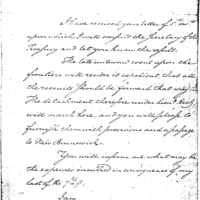 I have received your letter of 5th inst
upon which I will consult the Secretary of the
Treasury and let you know the result.
The late untoward event upon the
frontiers will render it expedient that all
the recruits should be forwarded that way
The detachment therefore under Lieut
will march here, and you will please to
furnish them with provisions and a passage
to New Brunswick.
You will inform me what may be
the expences incurred in consequence of my
last of the 7th
I am